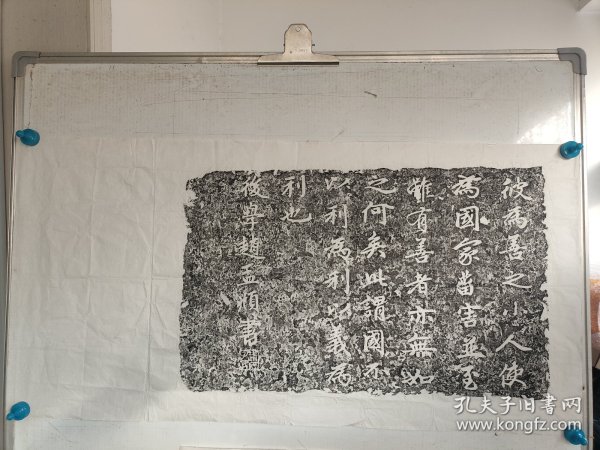 彼為善之小人使
為國家菑害並至
雖有善者亦無如
之何矣此謂國不
以利為利以義為
利也
後學趙孟頫書
孔夫子旧书网
www.kongfz.com